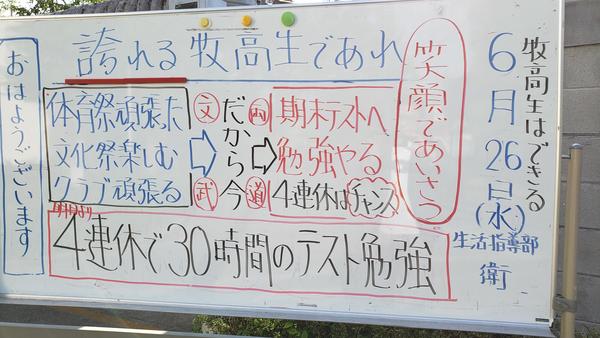 牧高生はできる
6月26日(水)
生活指導部
衛
笑顔であいさつ
誇れる牧高生であれ
体育祭頑張った
文化祭楽しむ
クラブ頑張る
文武
だから今
両道
期末テストへ
勉強やる
4連休はチャンス
明日より
4連休で30時間のテスト勉強
おはようございます